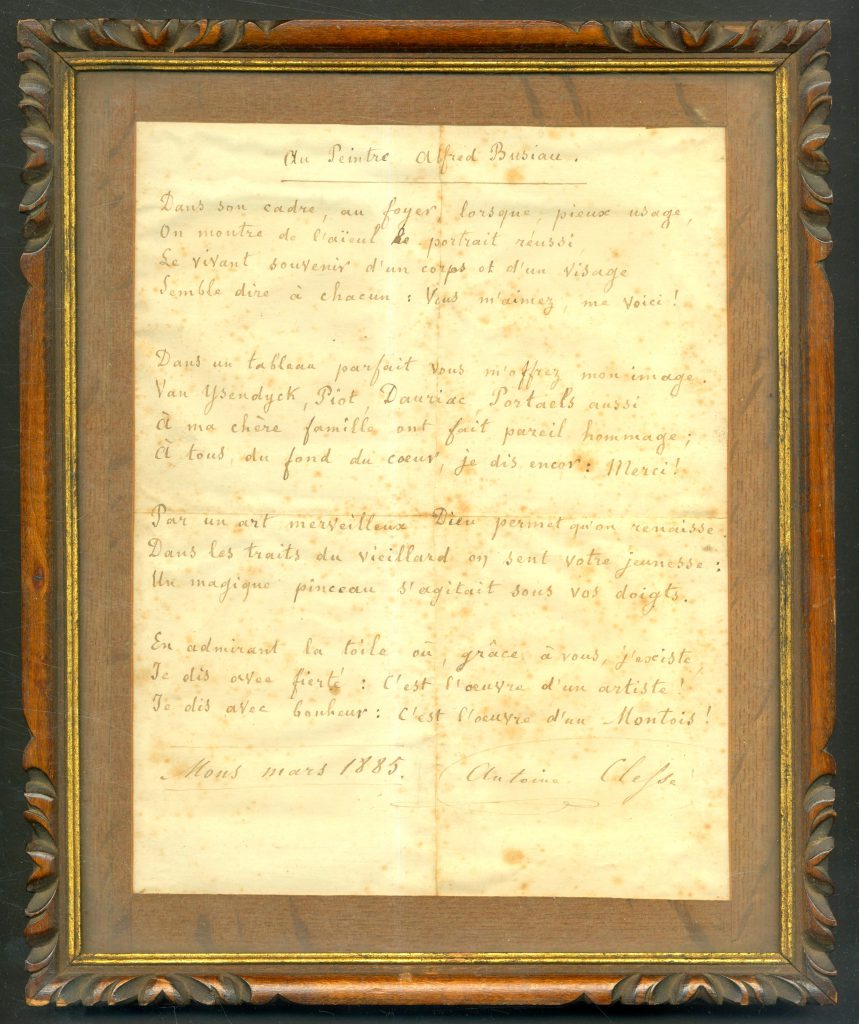 Au Peintre Alfred Busiau.
Dans son cadre, au foyer, lorsque, pieux usage,
On montre de l'aïeul le portrait réussi
Le vivant souvenir d'un corps et d'un visage
Semble dire à chacun : Vous m'aimez, me voici !
Dans un tableau parfait vous m'offrez mon image.
Van Ysendyck, Piot, Dauriac, Portaels aussi
À ma chère famille ont fait pareil hommage ;
À tous, du fond du cœur, je dis encor : Merci !
Par un art merveilleux Dieu permet qu'on renaisse.
Dans les traits du vieillard on sent votre jeunesse :
Un magique pinceau s'agitait sous vos doigts.
En admirant la toile où, grâce à vous, j'existe,
Je dis avec fierté : C'est l'œuvre d'un artiste !
Je dis avec bonheur : C'est l'œuvre d'un Montois !
Mons mars 1885. Antoine Clesse